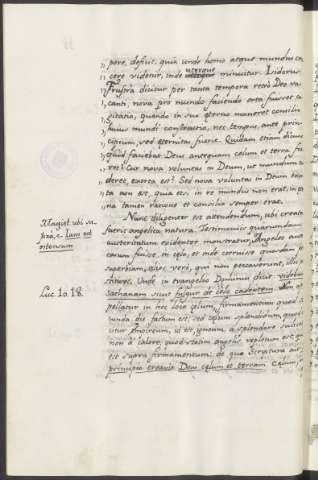 pore, desinit, quia unde homo atque mundus cres
cere videtur, inde uterque minuitur. Isidorus
Frustra dicitur per tanta tempora retro Deo va
canti, nova pro mundo faciendo orta fuisset co
gitatio, quando in sua eterna maneret consilio
huius mundi constructio, nec tempus ante prin
cipium, sed eternitas fuerit. Quidam etiam dicunt
quid faciebat Deus antequam celum et terra fa
ret? Cur nova voluntas in Deum, ut mundum con
deret, exorta est? Sed nova voluntas in Deum exor
ta non est, quia etsi in re mundus non erat, in eter
na tamen ratione et consilio semper erat.
Nunc diligenter est attendendum, ubi creata
fuerit angelica natura. Testimoniis quarundam
auctoritatum evidenter monstratur, Angelos ante
casum fuisse in celo, et inde corruisse quosdam
superbiam, alios vero, qui non peccaverunt,
Unde in evangelio Dominus dicit videbam
sathanam sicut fulgur de celo cadentem.
pellatur in hoc loco celum, firmamentum quod
cunda die factum est, sed celum splendidum, quod
citur Empireum, id est, igneum, a splendore
non a calore, quod statim angelis repletum
est supra firmamentum, de quo Scriptura
principio creavit Deus celum et terram celum,
Magist. ubi su
pra,
Luc. 10. 18.